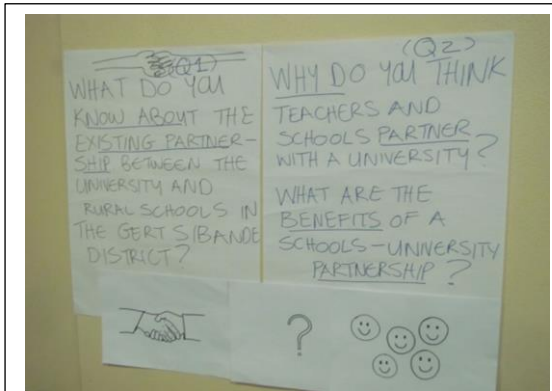 (Q1)
WHAT DO YOU
KNOW ABOUT THE
EXISTING PARTNER-
SHIP BETWEEN THE
UNIVERSITY AND
RURAL SCHOOLS IN
THE GERT SIBANDE
DISTRICT?
(Q2)
WHY DO YOU THINK
TEACHERS AND
SCHOOLS PARTNER
WITH A UNIVERSITY?
WHAT ARE THE
BENEFITS OF A
SCHOOLS-UNIVERSITY
PARTNERSHIP?
?